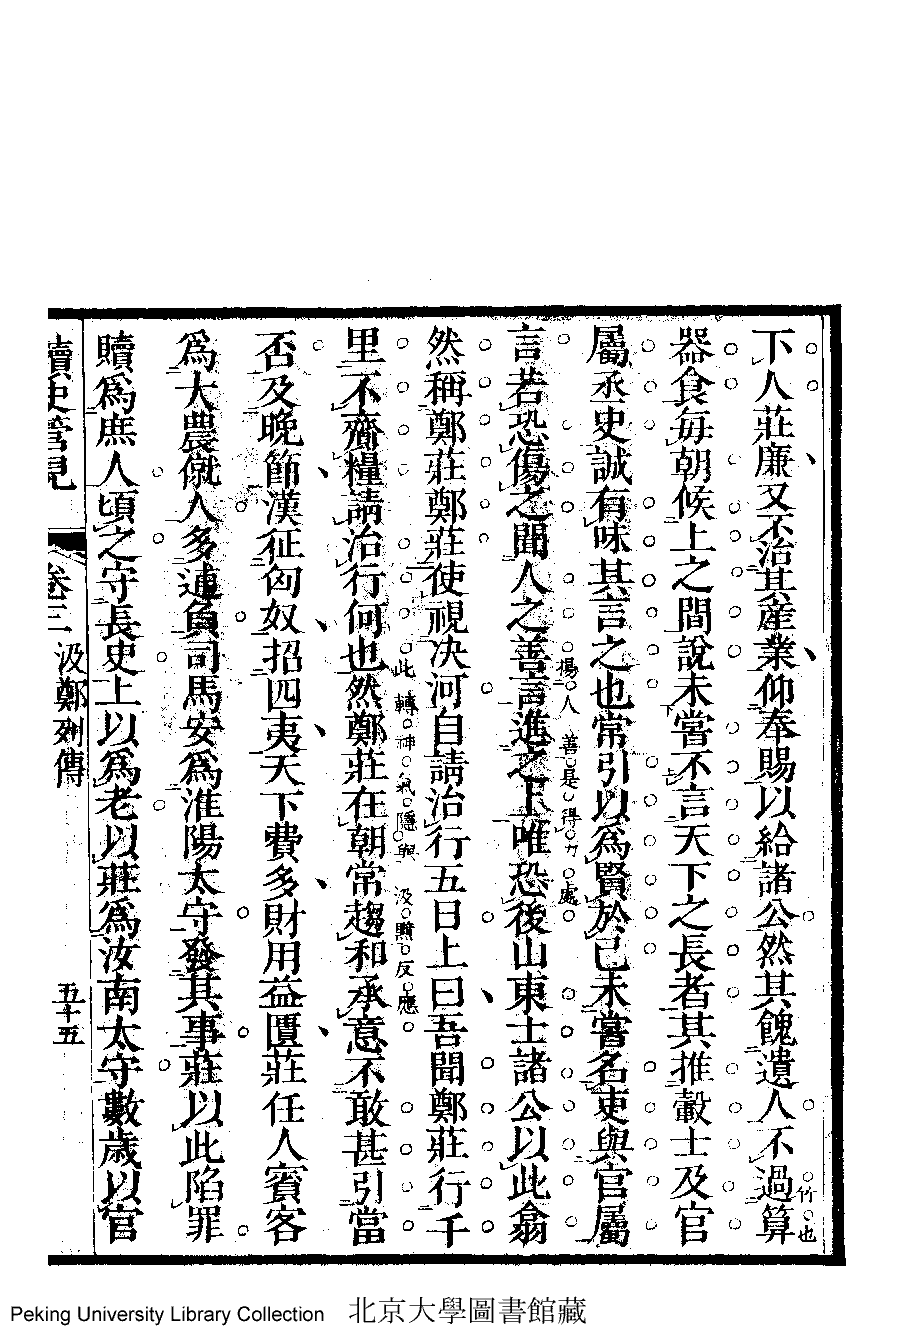 下人莊廉又不治其產業仰奉賜以給諸公然其餽遺人不過算竹也
器食每朝候上之間說未嘗不言天下之長者其推轂士及官
屬丞史誠有味其言之也常引以爲賢於己未嘗名吏與官屬
言若恐傷之聞人之善言進之上唯恐後山東士諸公以此翕
揚人善是得力處
然稱鄭莊鄭莊使視决河自請治行五日上曰吾聞鄭莊行千
里不齎糧請治行何也然鄭莊在朝常趨和承意不敢甚引當
此轉神氣隱與汲黯反應
否及晚節漢征匈奴招四夷天下費多財用益匱莊任人賓客
爲大農僦人多逋負司馬安爲淮陽太守發其事莊以此陷罪
贖爲庶人頃之守長史上以爲老以莊爲汝南太守數歲以官
讀史管見 卷三 汲鄭列傳 五十五
Peking University Library Collection 北京大學圖書館藏